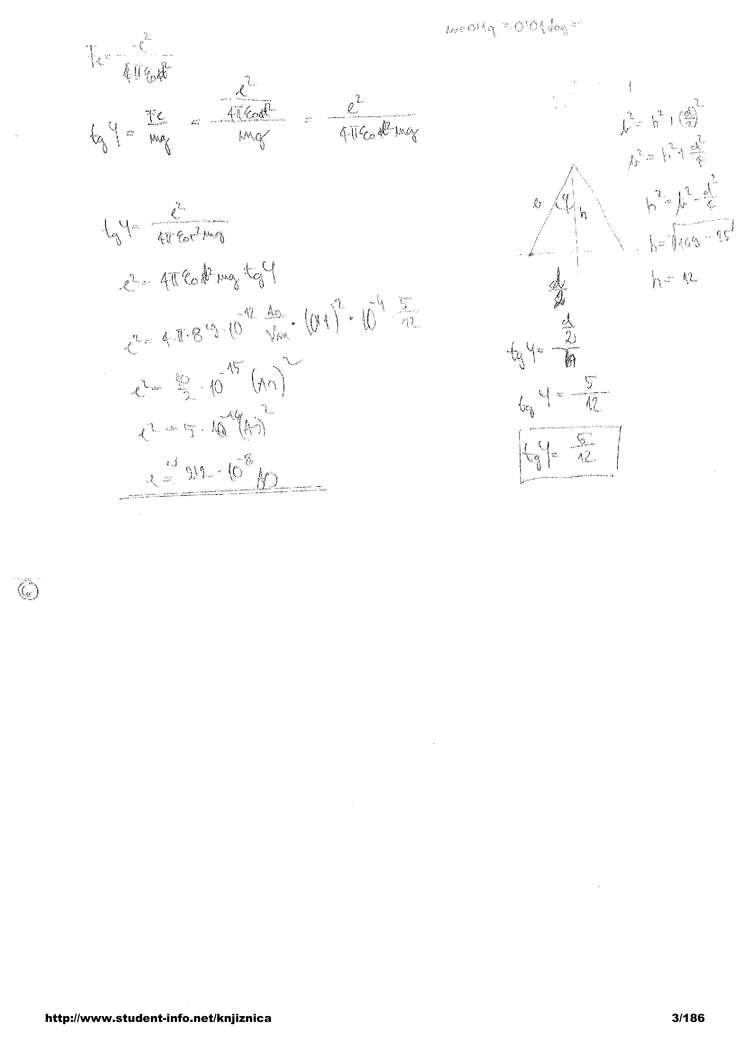 m=0'1g = 0'01dag =
Fe = e² / 4πε₀d²
tg φ = Fe / mg = (e² / 4πε₀d²) / mg = e² / 4πε₀d²mg
b² = h² + (d/2)²
b² = h² + d²/4
h² = b² - d²/4
h = √169 - 25
h = 12
φ h
d/2
tg φ = e² / 4πε₀r²mg
e² = 4πε₀d²mg tg φ
e² = 4·π·8'9·10⁻¹² As/Vm · (0'1)² · 10⁻⁴ 5/12
e² = 10/2 · 10⁻¹⁵ (As)²
e² = 5 · 10⁻¹⁶ (As)²
e = 2'2 · 10⁻⁸ As
tg φ = (d/2) / h
tg φ = 5/12
tg φ = 5/12
6
http://www.student-info.net/knjiznica
3/186